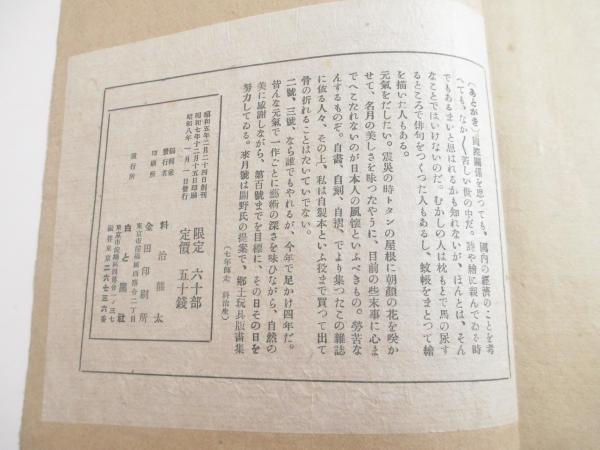 （あとがき）國際關係を思つても、國內の經濟のことを考
へても、なか〳〵苦しい世の中だ。詩や繪に親んでゐる時
でもあるまいと思はれるかも知れないが、ほんとは、そん
なことではいけないのだ。むかしの人は枕もとで馬の尿す
るところで俳句をつくつた人もあるし、蚊帳をまとつて繪
を描いた人もある。
元氣をだしたい。震災の時トタンの屋根に朝顏の花を咲か
せて、名月の美しさを味つたやうに、目前の些末事に心ま
でへこたれないのが日本人の風懷といふべきもの。勞苦な
んするものぞ。自畫、自刻、自摺、でより集つたこの雜誌
に依る人々、その上、私は自製本といふ役まで買つて出て
骨の折れることはたいていでない。
二號、三號、なら誰でもやれるが、今年で足かけ四年だ。
皆んな元氣で一作ごとに藝術の深さを味ひながら、自然の
美に感謝しながら、第百號までを目標に、その日その日を
努力してゐる。來月號は關野氏の提案で、鄕土玩具版畫集
（七年師走 料治生）
限定 六十部
定價 五十錢
昭和五年二月二十四日創刊
昭和七年十二月十五日印刷
昭和八年一月一日發行
編輯兼
發行者 料治熊太
東京市淀橋區西落合二丁目
印刷所 金田印刷所
東京市淀橋區西落合一ノ三七
發行所 白と黑社
振替東京二六七三六番